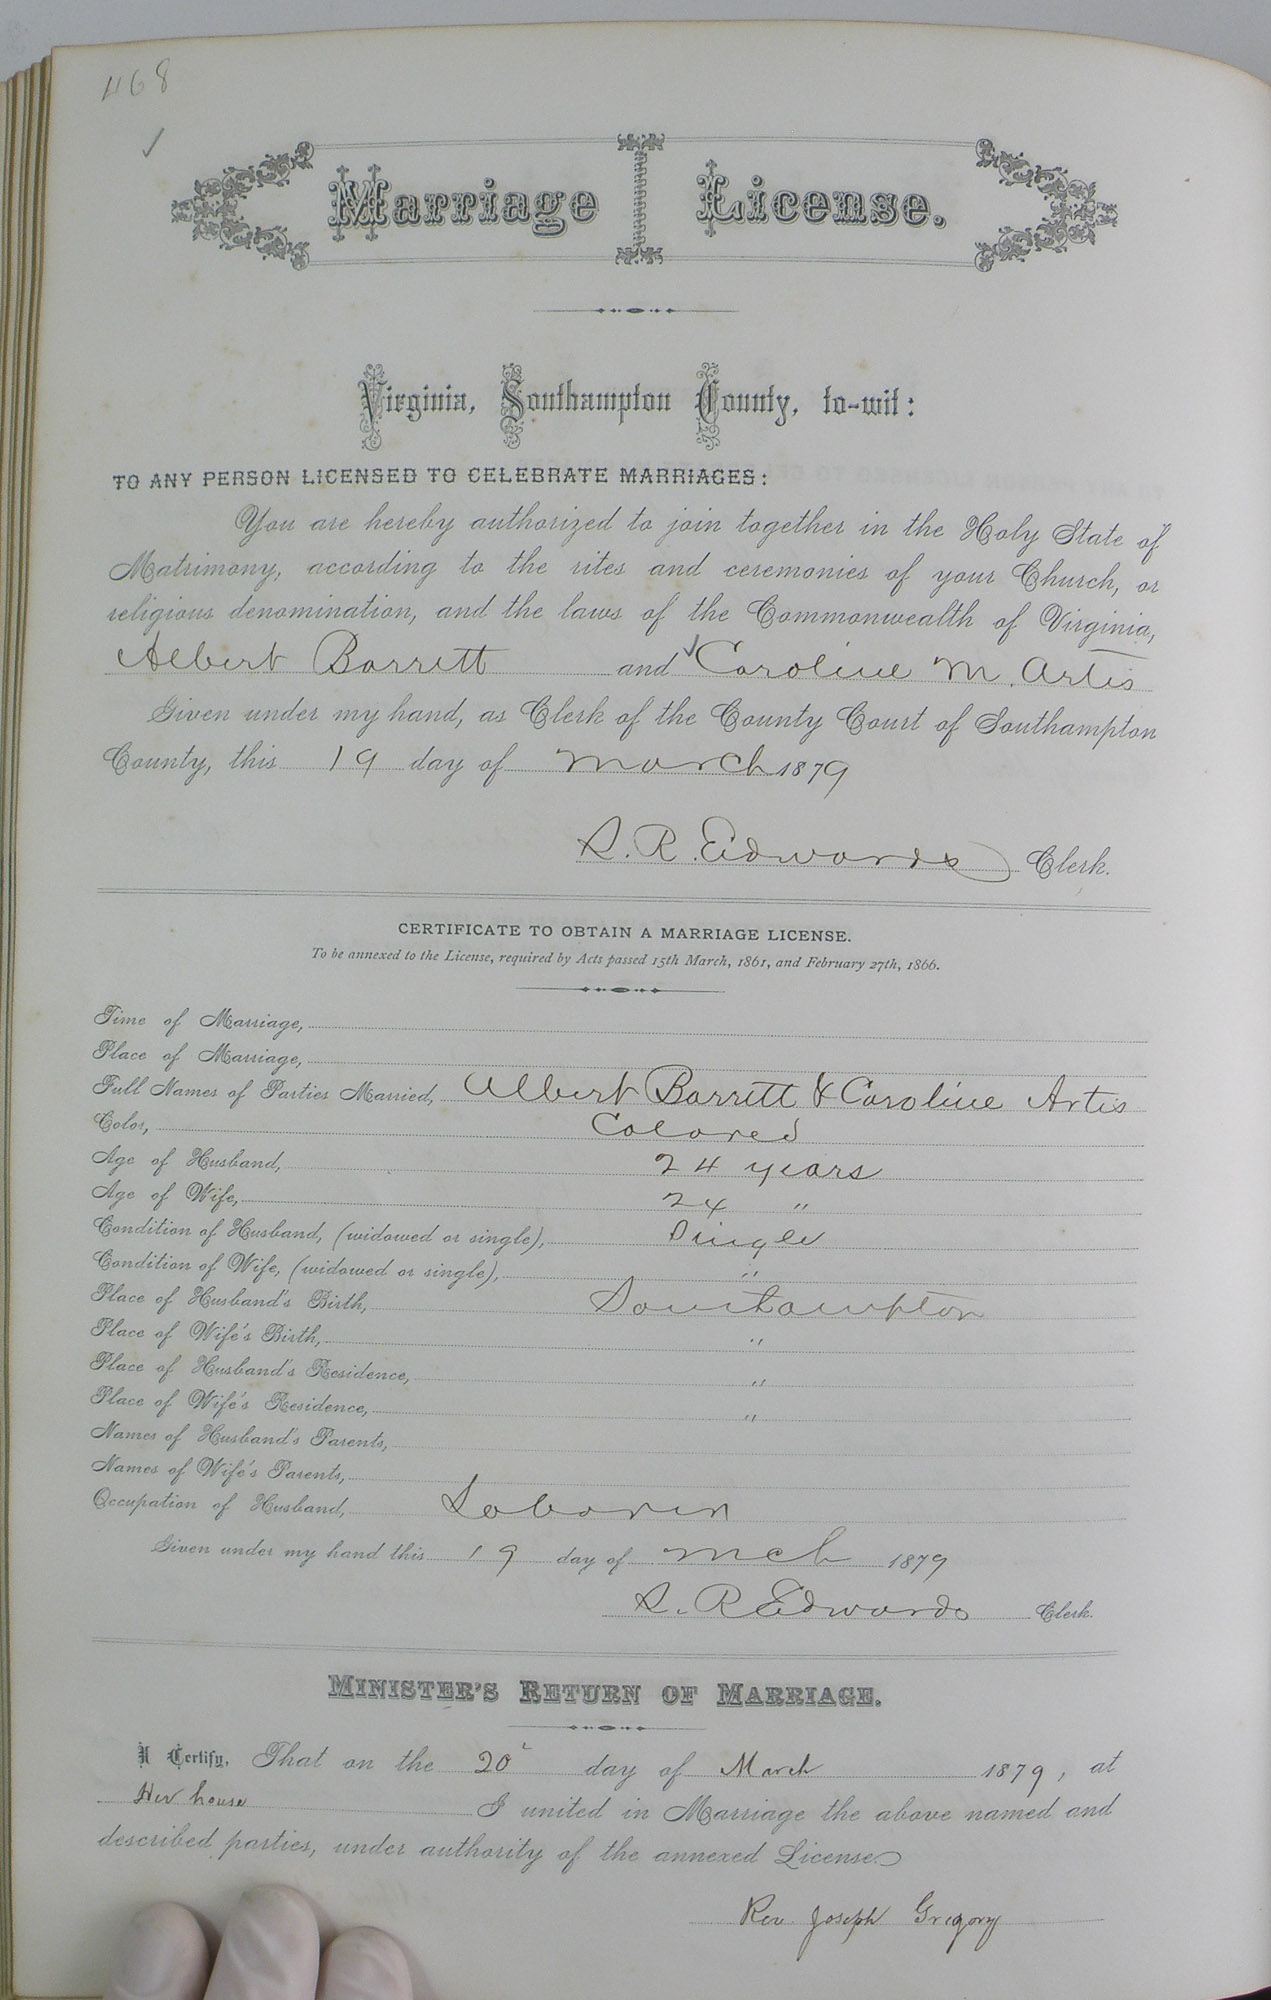 468
✓
Marriage License.
Virginia, Southampton County, to-wit:
TO ANY PERSON LICENSED TO CELEBRATE MARRIAGES:
You are hereby authorized to join together in the Holy State of
Matrimony, according to the rites and ceremonies of your Church, or
religious denomination, and the laws of the Commonwealth of Virginia,
Albert Barrett and ✓ Caroline M. Artis
Given under my hand, as Clerk of the County Court of Southampton
County, this 19 day of March 1879
L. R. Edwards Clerk.
CERTIFICATE TO OBTAIN A MARRIAGE LICENSE.
To be annexed to the License, required by Acts passed 15th March, 1861, and February 27th, 1866.
Time of Marriage,
Place of Marriage,
Full Names of Parties Married, Albert Barrett & Caroline Artis
Color, Colored
Age of Husband, 24 years
Age of Wife, 24 "
Condition of Husband, (widowed or single), Single
Condition of Wife, (widowed or single), "
Place of Husband's Birth, Southampton
Place of Wife's Birth, "
Place of Husband's Residence, "
Place of Wife's Residence, "
Names of Husband's Parents,
Names of Wife's Parents,
Occupation of Husband, Laborer
Given under my hand this 19 day of Mch 1879
L. R Edwards Clerk.
MINISTER'S RETURN OF MARRIAGE.
I Certify, That on the 20 day of March 1879, at
Her house I united in Marriage the above named and
described parties, under authority of the annexed License.
Rev. Joseph Gregory